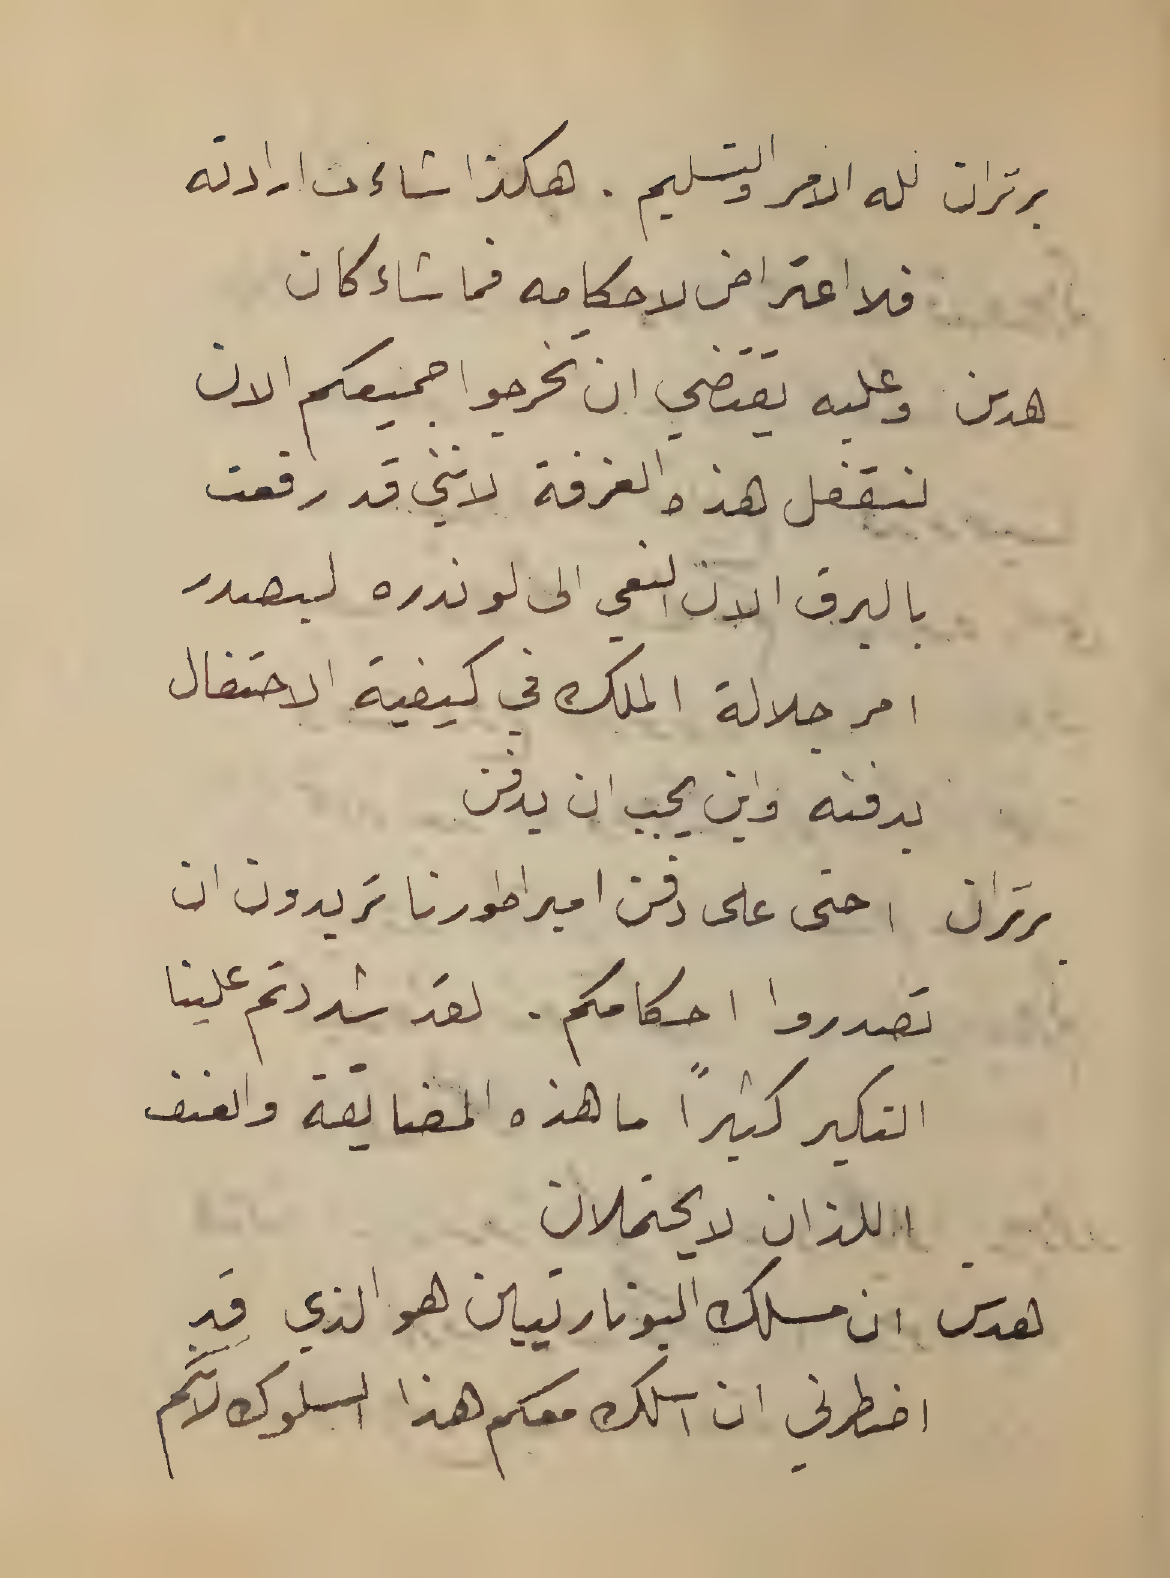 برتران لله الامر والتسليم . هكذا شاءت ارادته
فلا اعتراض لاحكامه فما شاء كان
هدسن وعليه يقتضي ان تخرجوا جميعكم الان
لنقفل هذه الغرفة لانني قد رفعت
بالبرق الان النعي الى لوندره ليصدر
امر جلالة الملك في كيفية الاحتفال
بدفنه واين يجب ان يدفن
برتران احتى على دفن اميراطورنا تريدون ان
تصدروا احكامكم . لقد شددتم علينا
النكير كثيراً ما هذه المضايقة والعنف
اللذان لا يحتملان
هدسن ان مسلك البونارتيين هو الذي قد
اضطرني ان اسلك معكم هذا السلوك لانكم